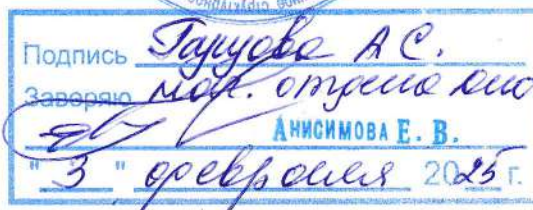 Подпись А С.
Заверяю нач. отдела
Анисимова Е. В.
"3" февраля 2025 г.